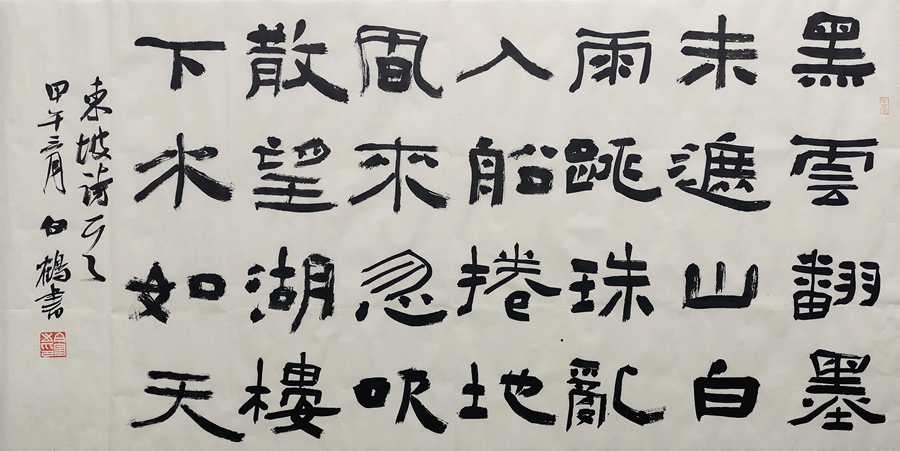 黑雲翻墨
未遮山白
雨跳珠亂
入船捲地
風來忽吹
散望湖樓
下水如天
東坡詩
甲午三月 白鶴書